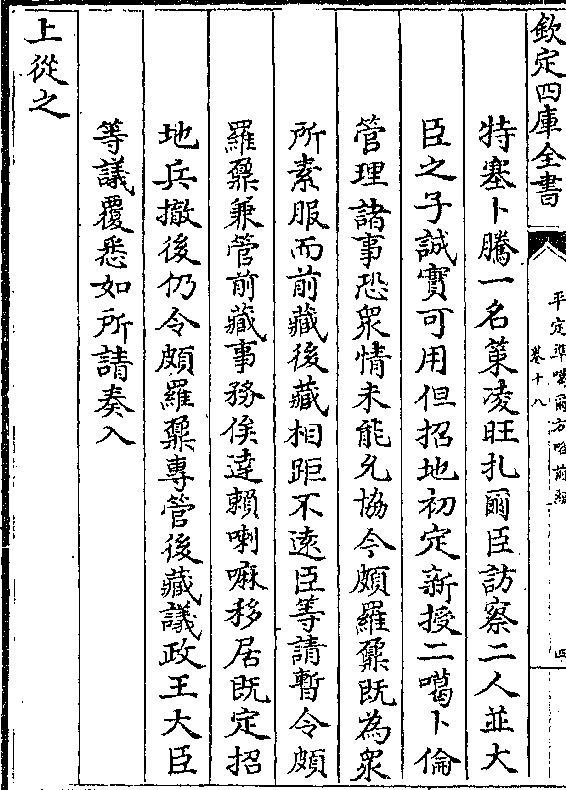 欽定四庫全書
平定準噶爾方略前編
卷十八
四
特塞卜騰一名策凌旺扎爾臣訪察二人並大
臣之子誠實可用但招地初定新授二噶卜倫
管理諸事恐衆情未能允協今頗羅鼐既為衆
所素服而前藏後藏相距不遠臣等請暫令頗
羅鼐兼管前藏事務俟達賴喇嘛移居既定招
地兵撤後仍令頗羅鼐專管後藏議政王大臣
等議覆悉如所請奏入
上從之